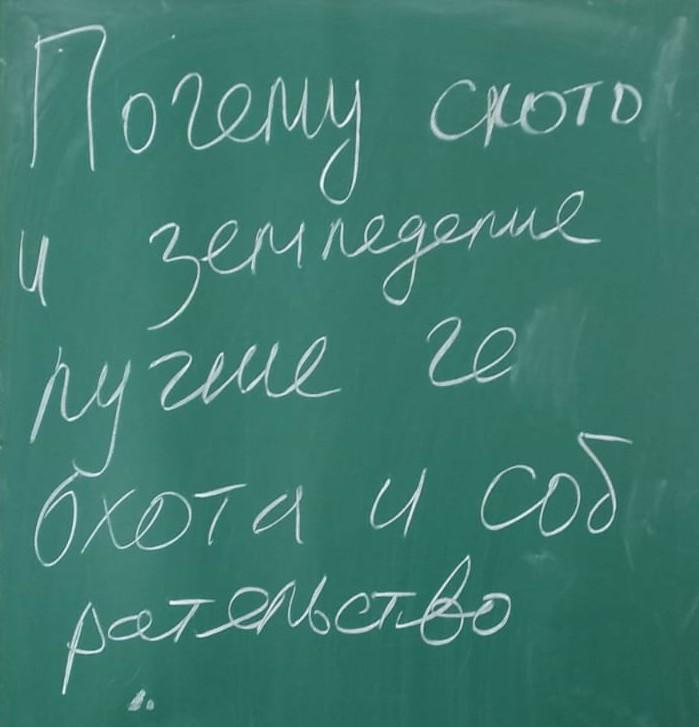 Почему ското
и земледелие
лучше че
охота и соб
рательство